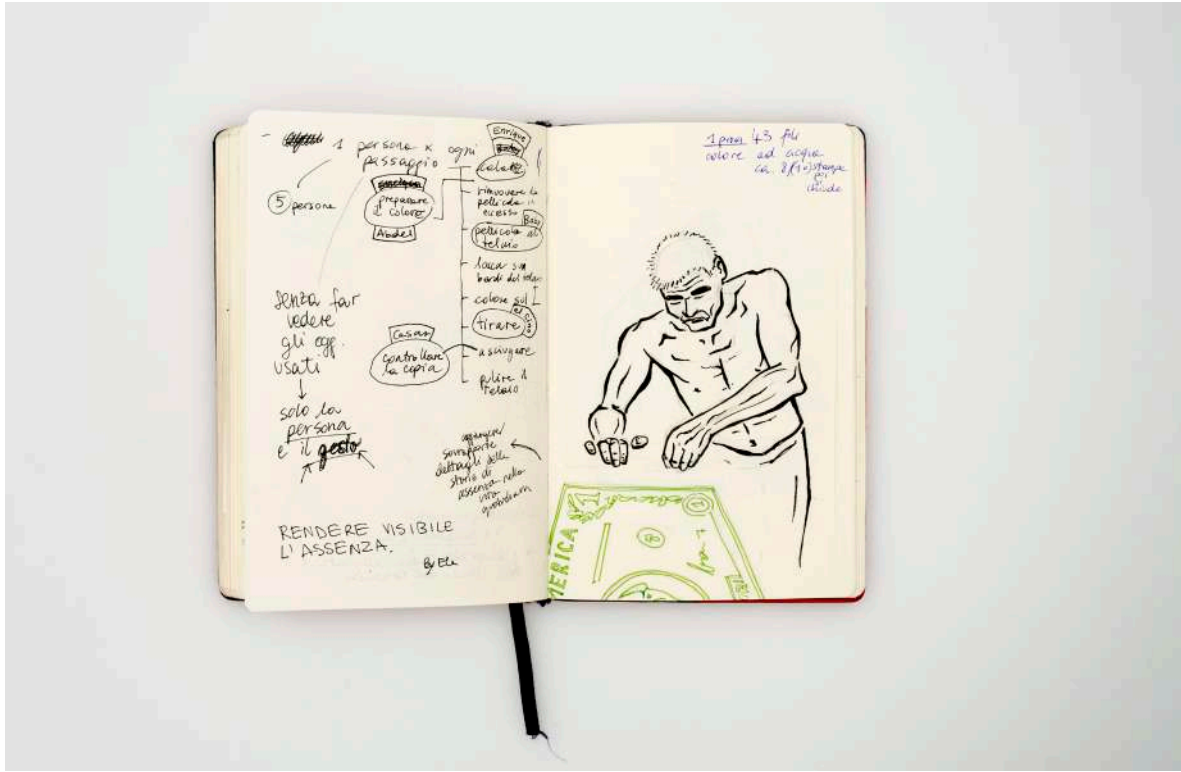 1 persona x ogni
passaggio
5 persone
preparare
il colore
Abdel
Enrique
rimuovere la
pellicola in
eccesso
pellicola al
telaio
lacca sui
bordi del telaio
colore sul
tirare
asciugare
pulire il
telaio
Cesar
controllare
la copia
senza far
vedere
gli ogg.
usati
solo la
persona
e il gesto
sovrapporre
dettagli delle
storie di
assenza nella
vita
quotidiana
RENDERE VISIBILE
L'ASSENZA.
By Ele
1 prova 43 fili
colore ad acqua
ca. 8/10 stampe
poi
chiude
MERICA